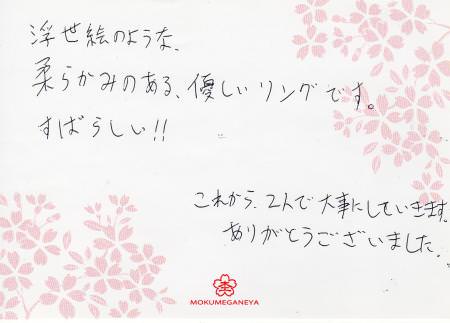 浮世絵のような、
柔らかみのある、優しいリングです。
すばらしい!!
これから、2人で大事にしていきます。
ありがとうございました。
MOKUMEGANEYA